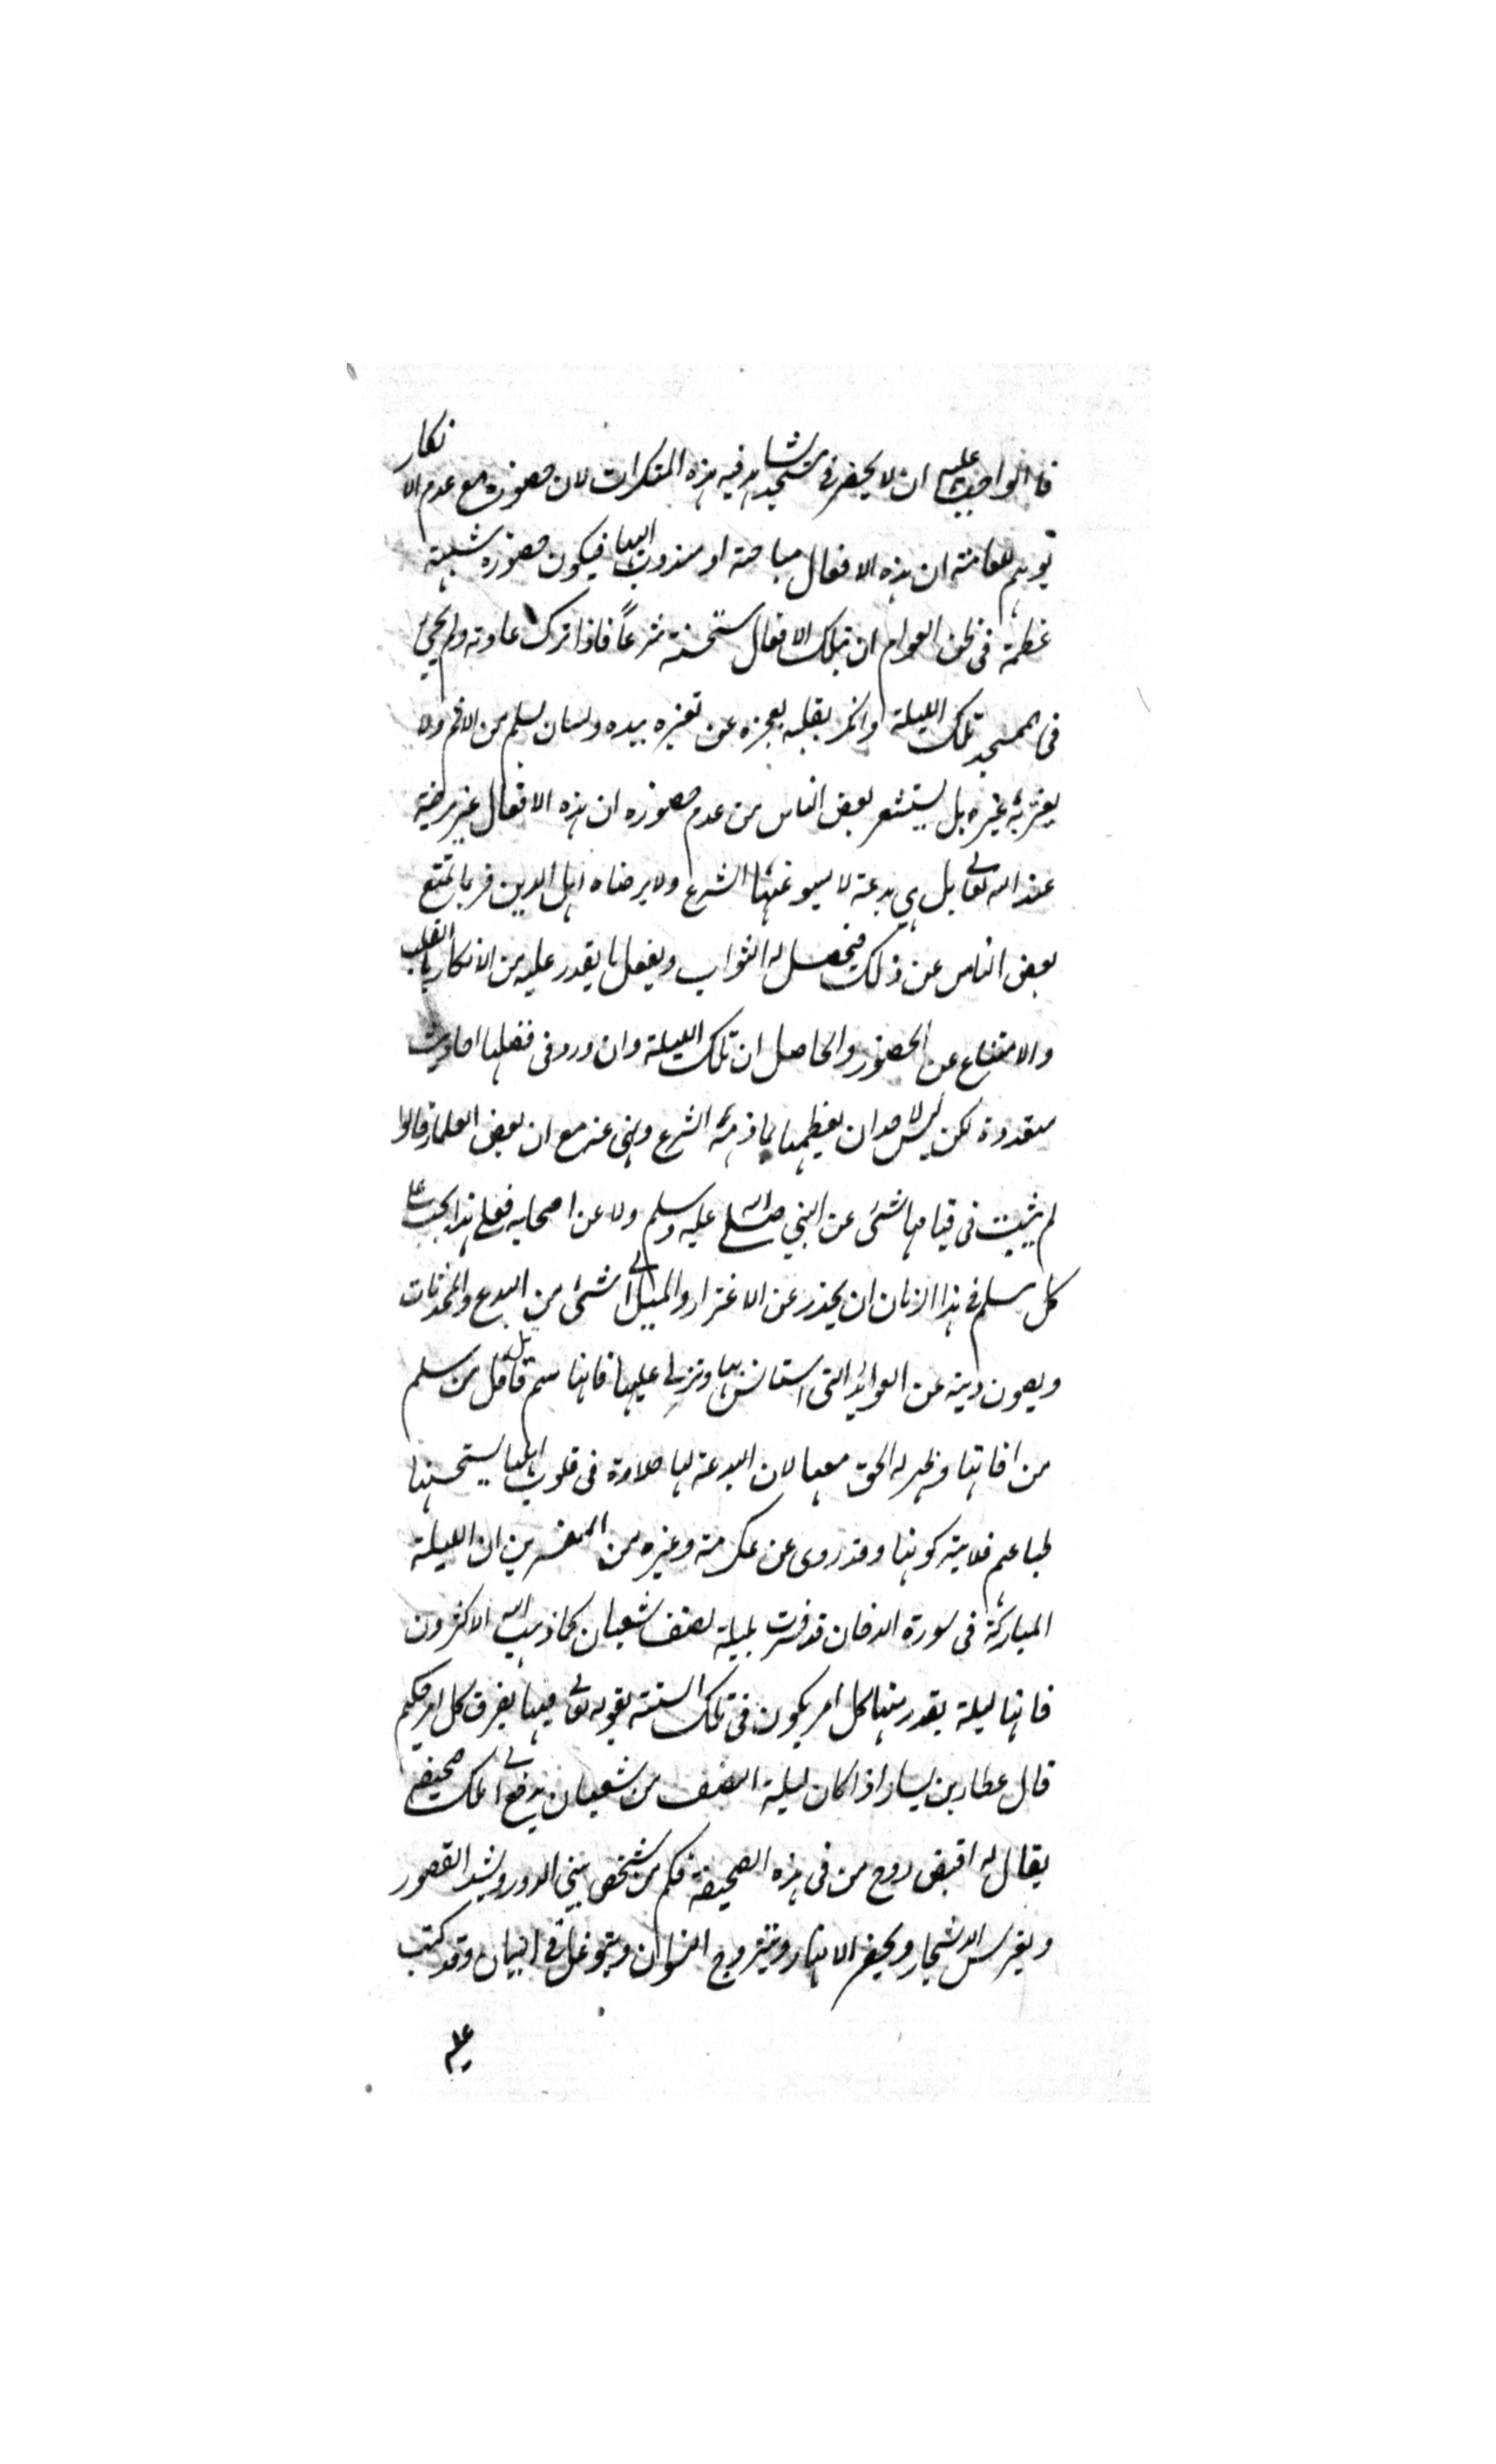 فالواجب عليه ان لا يحضر في مسجد يشاهد فيه هذه المنكرات لان حضوره مع عدم الانكار
يوهم للعامة ان هذه الافعال مباحة او مندوب اليها فيكون حضوره شبهة
عظيمة في ظن العوام ان تلك الافعال مستحسنة شرعاً فاذا ترك عادته ولم يجئ
في المسجد تلك الليلة وانكر بقلبه لعجزه عن تغيره بيده ولسانه يسلم من الاثم ولا
يغتر به غيره بل يستشعر بعض الناس من عدم حضوره ان هذه الافعال غير مرضية
عند الله تعالى بل هي بدعة لا يسوغها الشرع ولا يرضاه اهل الدين فربما يمتنع
بعض الناس عن ذلك فيحصل له الثواب ويفعل ما يقدر عليه من الانكار بالقلب
والامتناع عن الحضور والحاصل ان تلك الليلة وان ورد في فضلها احاديث
متعددة لكن ليس لاحد ان يعظمها بما ذمه الشرع ونهى عنه مع ان بعض العلماء قالوا
لم يثبت في قيامها شئ عن النبي صلى الله عليه وسلم ولا عن اصحابه فعلى هذا يجب على
كل مسلم في هذا الزمان ان يحذر عن الاغترار والميل الى شئ من البدع والمحدثات
ويصون دينه عن العوائد التي استانس بها وتربى عليها فانها سم قاتل قل من سلم
من افاتها وظهر له الحق معها لان البدعة لها حلاوة في قلوب اهلها يستحسنها
طباعهم فلا يتركونها وقد روى عن عكرمة وغيره من المفسرين ان الليلة
المباركة في سورة الدخان قد فسرت بليلة نصف شعبان كما ذهب اليه الاكثرون
فانها ليلة يقدر فيها كل امر يكون في تلك السنة بقوله تعالى فيها يفرق كل امر حكيم
قال عطاء بن يسار اذا كان ليلة النصف من شعبان يدفع الى ملك صحيفة
يقال له اقبض روح من في هذه الصحيفة فكم من شخص يبني الدور ويشيد القصور
ويغرس الاشجار ويحفر الانهار ويتزوج النسوان ويتوغل في البنيان وقد كتب
عليه